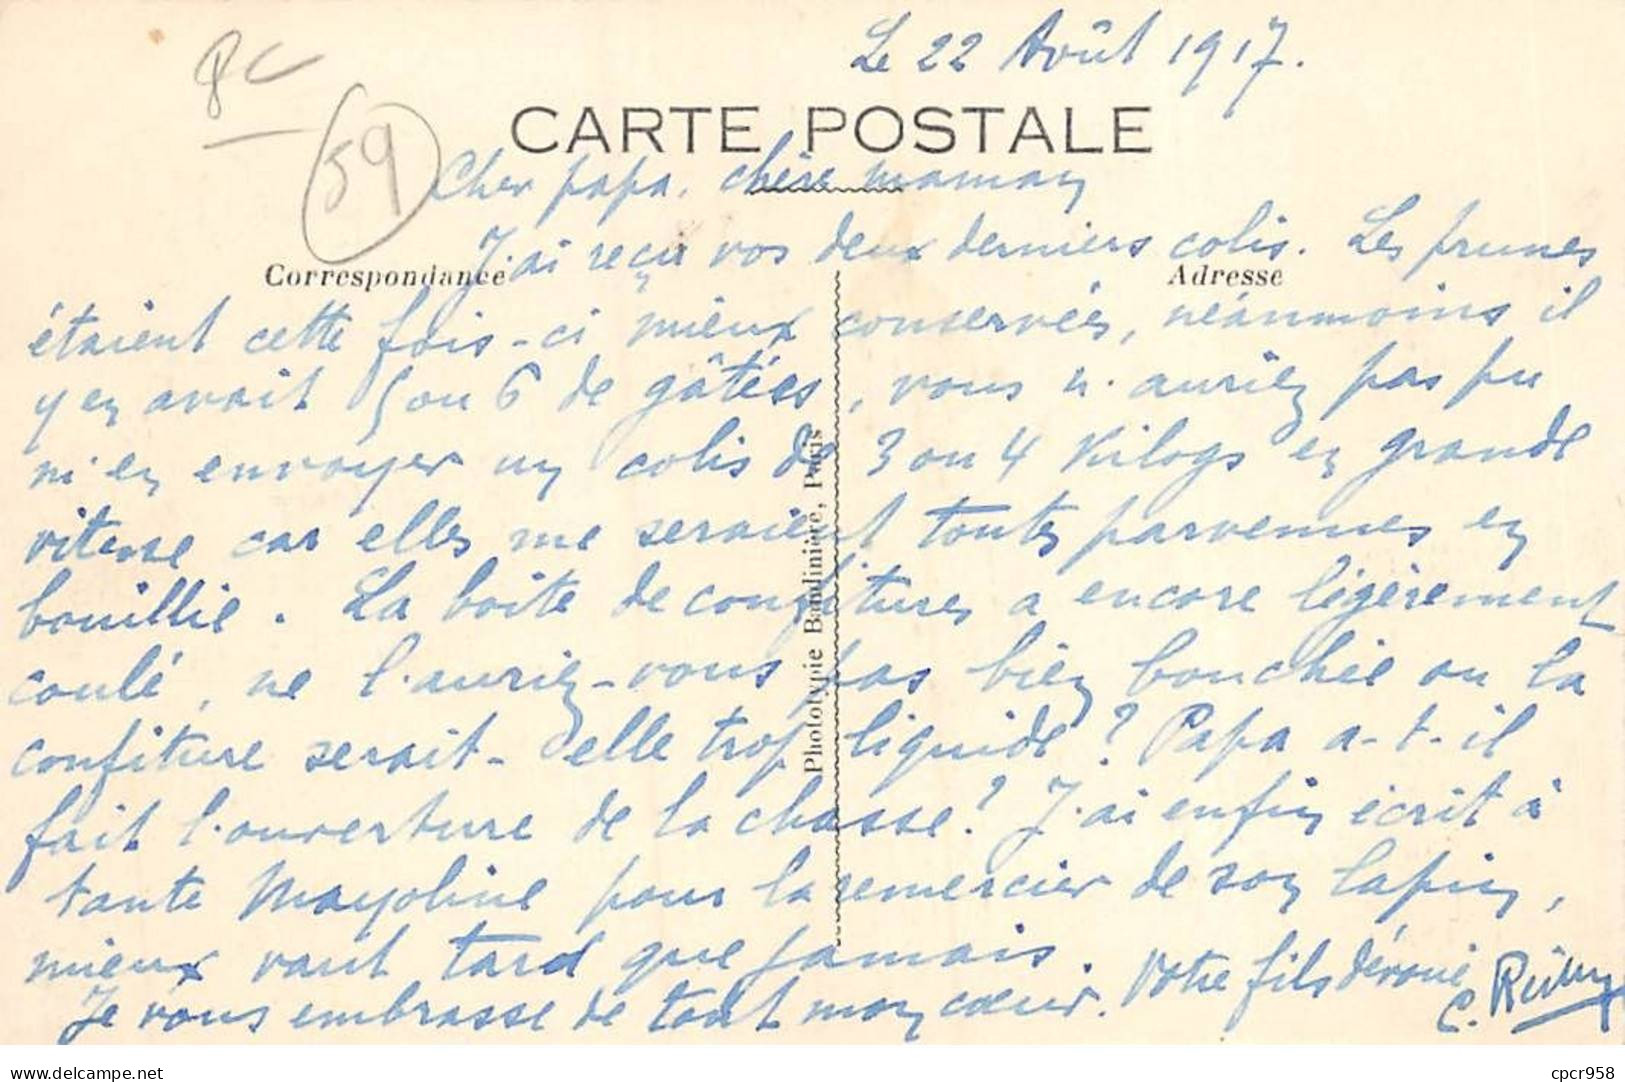 Le 22 Août 1917.
8C
59
CARTE POSTALE
Cher papa, chère maman
J'ai reçu vos deux derniers colis. Les prunes
Correspondance
Adresse
étaient cette fois-ci mieux conservées, néanmoins il
y en avait 5 ou 6 de gâtées, vous n'auriez pas pu
m'en envoyer un colis de 3 ou 4 Kilogs en grande
vitesse car elles me seraient toutes parvenues en
bouillie. La boite de confitures a encore légèrement
coulé, ne l'auriez-vous pas bien bouchée ou la
confiture serait-elle trop liquide? Papa a-t-il
fait l'ouverture de la chasse? J'ai enfin écrit à
tante Mayoline pour la remercier de son lapin,
mieux vaut tard que jamais. Votre fils dévoué
Je vous embrasse de tout mon cœur. C.
Phototypie Baudinière, Paris
delcampe.net
cpcr958